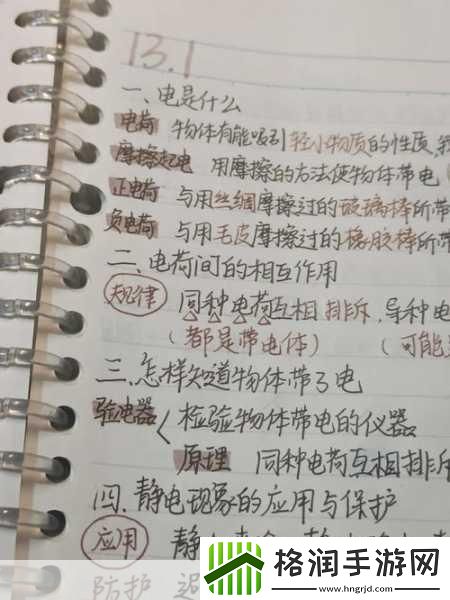 13.1
一、电是什么
电荷 物体有能吸引轻小物质的性质,
摩擦起电 用摩擦的方法使物体带电
正电荷 与用丝绸摩擦过的玻璃棒所带
负电荷 与用毛皮摩擦过的橡胶棒所带
二、电荷间的相互作用
规律 同种电荷互相排斥,异种电
(都是带电体) (可能
三、怎样知道物体带了电
验电器 检验物体带电的仪器
原理 同种电荷互相排斥
四、静电现象的应用与保护
应用 静
防护
格润手游网
www.hngrjd.com